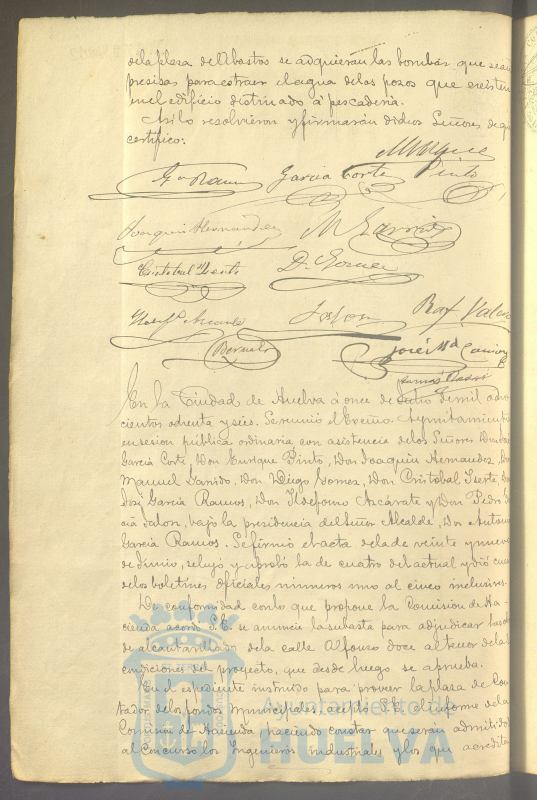 de la plaza de Abastos se adquieran las bombas que sean
precisas para estraer el agua de los pozos que existen
en el edificio destinado á pescadería.
Así lo resolvieron y firmarán dichos Señores de q.
certifico:
Pinto
Gª Ramos García Corte
Joaquin Hernandez M Garrido
Cristobal Iserte D. Gomez
Ildefº Azcarate Rafl
Bermudo José Mª
En la Ciudad de Huelva á once de Julio de mil ocho
cientos ochenta y seis. Se reunió el Excmo. Ayuntamiento
en sesion pública ordinaria con asistencia de los Señores
García Corte, Don Enrique Pinto, Don Joaquin Hernandez, Don
Manuel Garrido, Don Diego Gomez, Don Cristobal Iserte, Don
José García Ramos, Don Ildefonso Azcárate y Don Pedro Gar
cia Jalon, bajo la presidencia del Señor Alcalde, Don Antonio
García Ramos. Se firmó el acta de la de veinte y nueve
de Junio, se leyó y aprobó la de cuatro del actual y dió cuenta
de los boletines oficiales números uno al cinco inclusives.
De conformidad con lo que propone la Comision de Ha-
cienda acordó S.E. se anuncie la subasta para adjudicar las obras
de alcantarillado de la calle Alfonso doce al tenor de las
condiciones del proyecto, que desde luego se aprueba.
En el espediente instruido para proveer la plaza de Con
tador de los fondos municipales, aceptó S.E. el informe de la
Comision de Hacienda haciendo constar que serán admitidos
al Concurso los Ingenieros industriales y los que acrediten
Ayuntamiento de
HUELVA